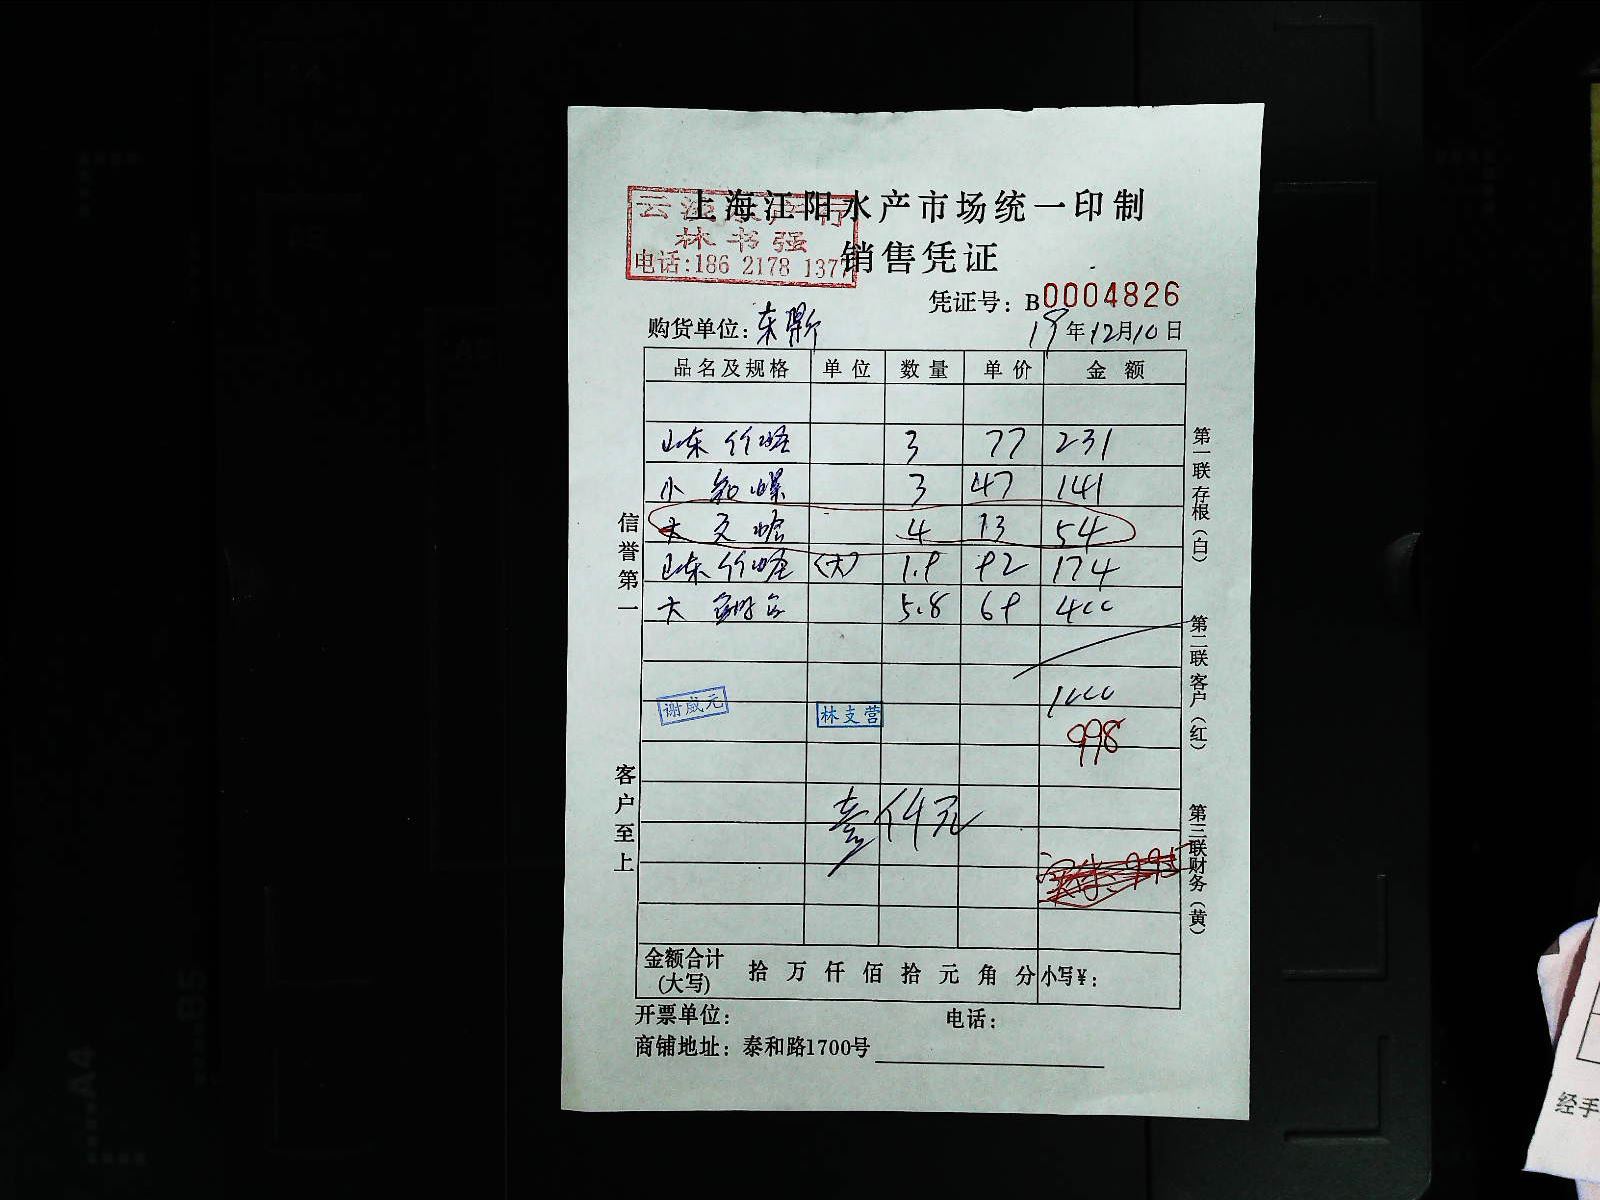 上海江阳水产市场统一印制
林书强
电话:186 2178 137
销售凭证
凭证号: B0004826
购货单位:
19年12月10日
品名及规格 单位 数量 单价 金额
山东竹蛏 3 77 231
小 螺 3 47 141
大文蛤 4 13 54
山东竹蛏 (大) 1.9 92 174
大 5.8 69 400
1000
谢威元 林支营
998
壹仟元
信誉第一
客户至上
第一联存根(白)
第二联客户(红)
第三联财务(黄)
金额合计(大写) 拾 万 仟 佰 拾 元 角 分 小写¥:
开票单位: 电话:
商铺地址: 泰和路1700号
经手
A4
B5